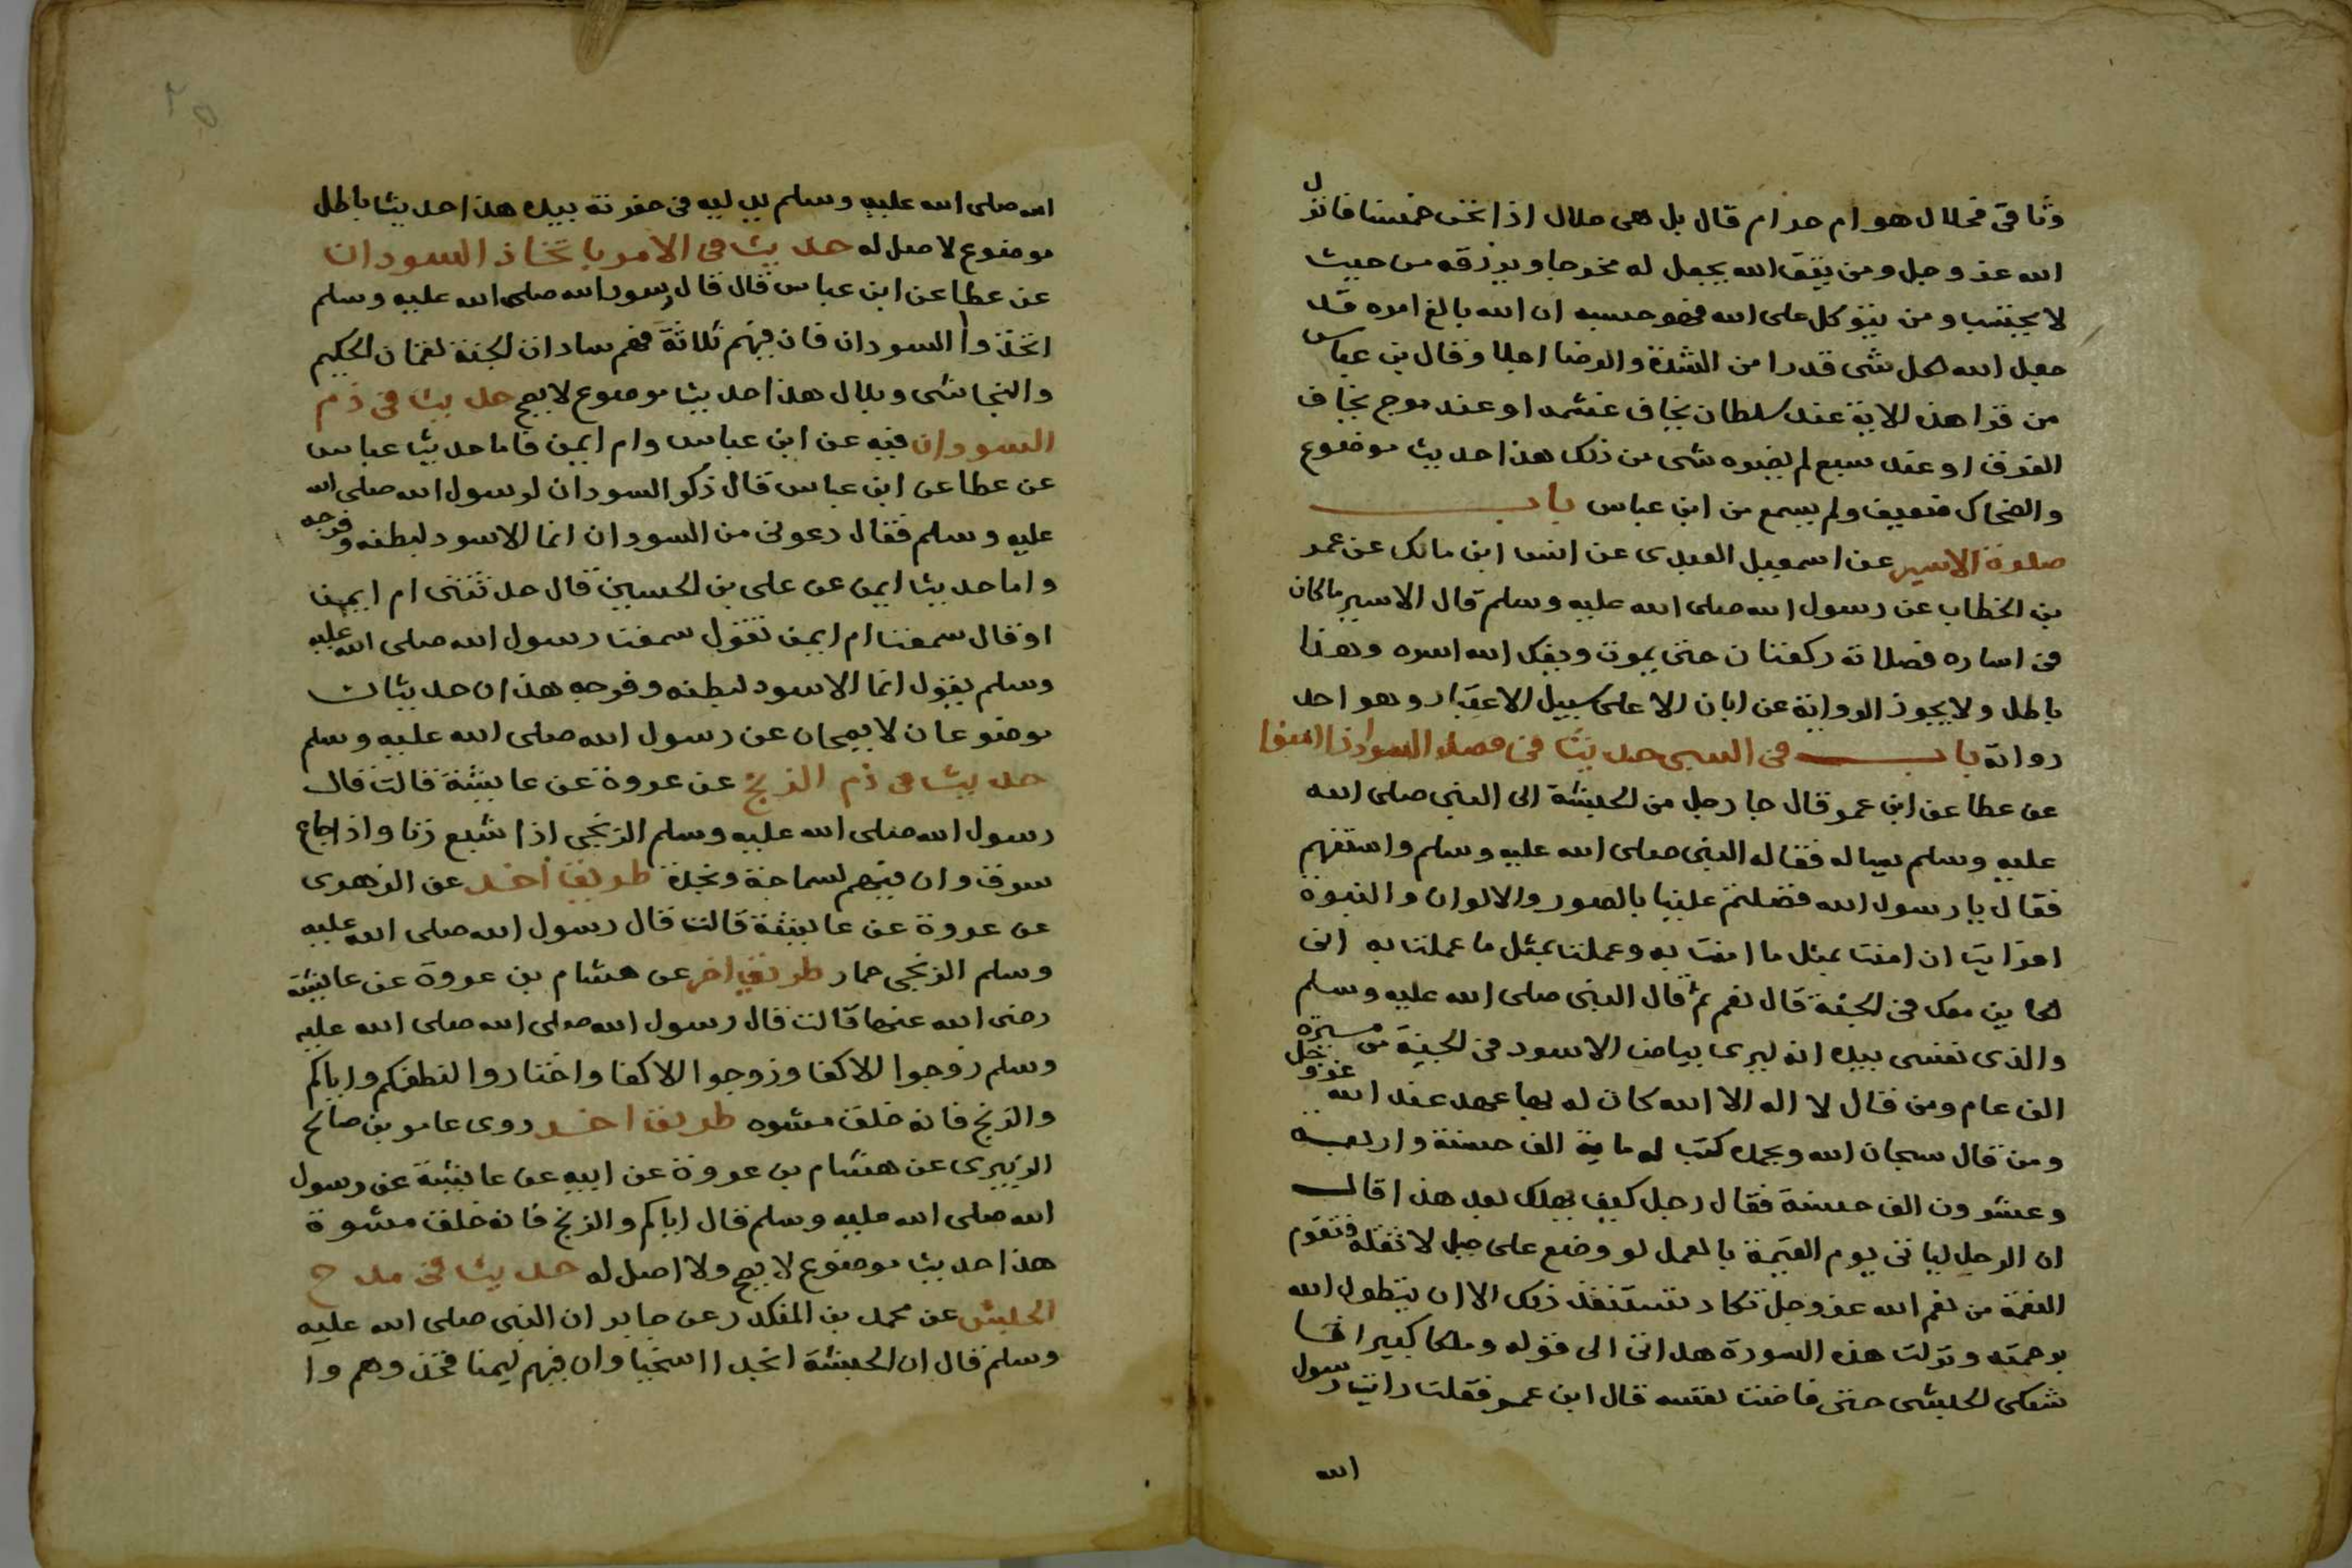 وثاقى فحلال هو ام حرام قال بل هى حلال اذا نحن خمسنا فانزل
الله عز وجل ومن يتق الله يجعل له مخرجا ويرزقه من حيث
لا يحتسب ومن يتوكل على الله فهو حسبه ان الله بالغ امره قد
جعل الله لكل شى قدرا من الشدة والرضا اجلا وقال بن عباس
من قرا هذه الاية عند سلطان يخاف غشمه او عند موج يخاف
الغرق او عند سبع لم يضره شى من ذلك هذا حديث موضوع
والضحاك ضعيف ولم يسمع من ابن عباس باب
صلوة الاسير عن اسمعيل العبدى عن انس ابن مالك عن عمر
بن الخطاب عن رسول الله صلى الله عليه وسلم قال الاسير ماكان
فى اساره فصلاته ركعتان حتى يموت ويفك الله اسره وهذا
باطل ولا يجوز الرواية عن ابان الا على سبيل الاعتبار وهو احد
رواته باب فى السبى حديث فى فضل السودان
عن عطا عن ابن عمر قال جا رجل من الحبشة الى النبى صلى الله
عليه وسلم يساله فقال له النبى صلى الله عليه وسلم واستفهم
فقال يا رسول الله فضلتم علينا بالصور والالوان والنبوه
افرايت ان امنت بمثل ما امنت به وعملت بمثل ما عملت به انى
لكاين معك فى الجنة قال نعم ثم قال النبى صلى الله عليه وسلم
والذى نفسى بيده انه ليرى بياض الاسود فى الجنة من مسيرة
الف عام ومن قال لا اله الا الله كان له بها عهد عند الله عز وجل
ومن قال سبحان الله وبحمده كتب له ماية الف حسنة واربعه
وعشرون الف حسنة فقال رجل كيف نهلك بعد هذا قال
ان الرجل لياتى يوم القيمة بالعمل لو وضع على جبل لاثقله فتقوم
النعمة من نعم الله عز وجل تكاد تستنفذ ذلك الا ان يتطول الله
برحمته ونزلت هذه السورة هل اتى الى قوله وملكا كبيرا
شتكى الحبشى حتى فاضت نفسه قال ابن عمر فقلت رايت رسول
الله
الله صلى الله عليه وسلم يدليه فى حفرته بيده هذا حديث باطل
موضوع لا اصل له حديث فى الامر باتخاذ السودان
عن عطا عن ابن عباس قال قال رسول الله صلى الله عليه وسلم
اتخذوا السودان فان فيهم ثلاثة فهم سادان الجنة لقمان الحكيم
والنجاشى وبلال هذا حديث موضوع لا يصح حديث فى ذم
السودان فيه عن ابن عباس وام ايمن فاما حديث عباس
عن عطا عن ابن عباس قال ذكر السودان لرسول الله صلى الله
عليه وسلم فقال دعونى من السودان انما الاسود لبطنه وفرجه
واما حديث ايمن عن على بن الحسين قال حدثتنى ام ايمن
او قال سمعت ام ايمن تقول سمعت رسول الله صلى الله عليه
وسلم يقول انما الاسود لبطنه وفرجه هذان حديثان
موضوعان لا يصحان عن رسول الله صلى الله عليه وسلم
حديث فى ذم الزنج عن عروة عن عايشة قالت قال
رسول الله صلى الله عليه وسلم الزنجى اذا شبع زنا واذا جاع
سرق وان فيهم لسماحة ونجدة طريق اخر عن الزهرى
عن عروة عن عايشة قالت قال رسول الله صلى الله عليه
وسلم الزنجى حمار طريق اخر عن هشام بن عروة عن عايشة
رضى الله عنها قالت قال رسول الله صلى الله صلى الله عليه
وسلم زوجوا الاكفا وزوجوا الاكفا واختاروا لنطفكم واياكم
والزنج فانه خلق مشوه طريق اخر روى عامر بن صالح
الزبيرى عن هشام بن عروة عن ابيه عن عايشة عن رسول
الله صلى الله عليه وسلم قال اياكم والزنج فانه خلق مشوة
هذا حديث موضوع لا يصح ولا اصل له حديث فى مدح
الحبش عن محمد بن المنكدر عن جابر ان النبى صلى الله عليه
وسلم قال ان الحبشة انجد اسخيا وان فيهم ليمنا فخذوهم وا